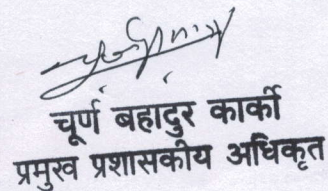 चूर्ण बहादुर कार्की
प्रमुख प्रशासकीय अधिकृत